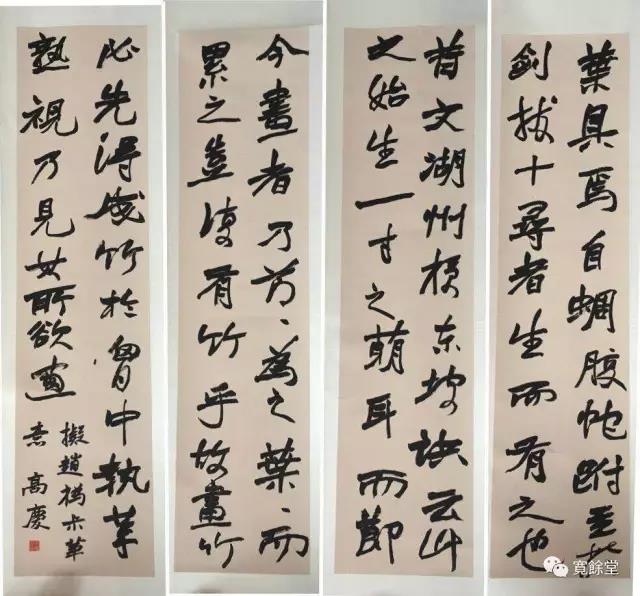 昔文湖州授东坡诀云竹
之始生一寸之萌耳而節
葉具焉自蜩腹蛇跗至於
劍拔十尋者生而有之也
今畫者乃节、為之葉、而
累之豈復有竹乎故畫竹
必先得成竹於胷中執筆
熟視乃見其所欲畫
擬趙撝叔筆
意 高慶
寶餘堂